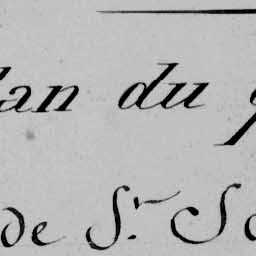 lan du
de S.r S